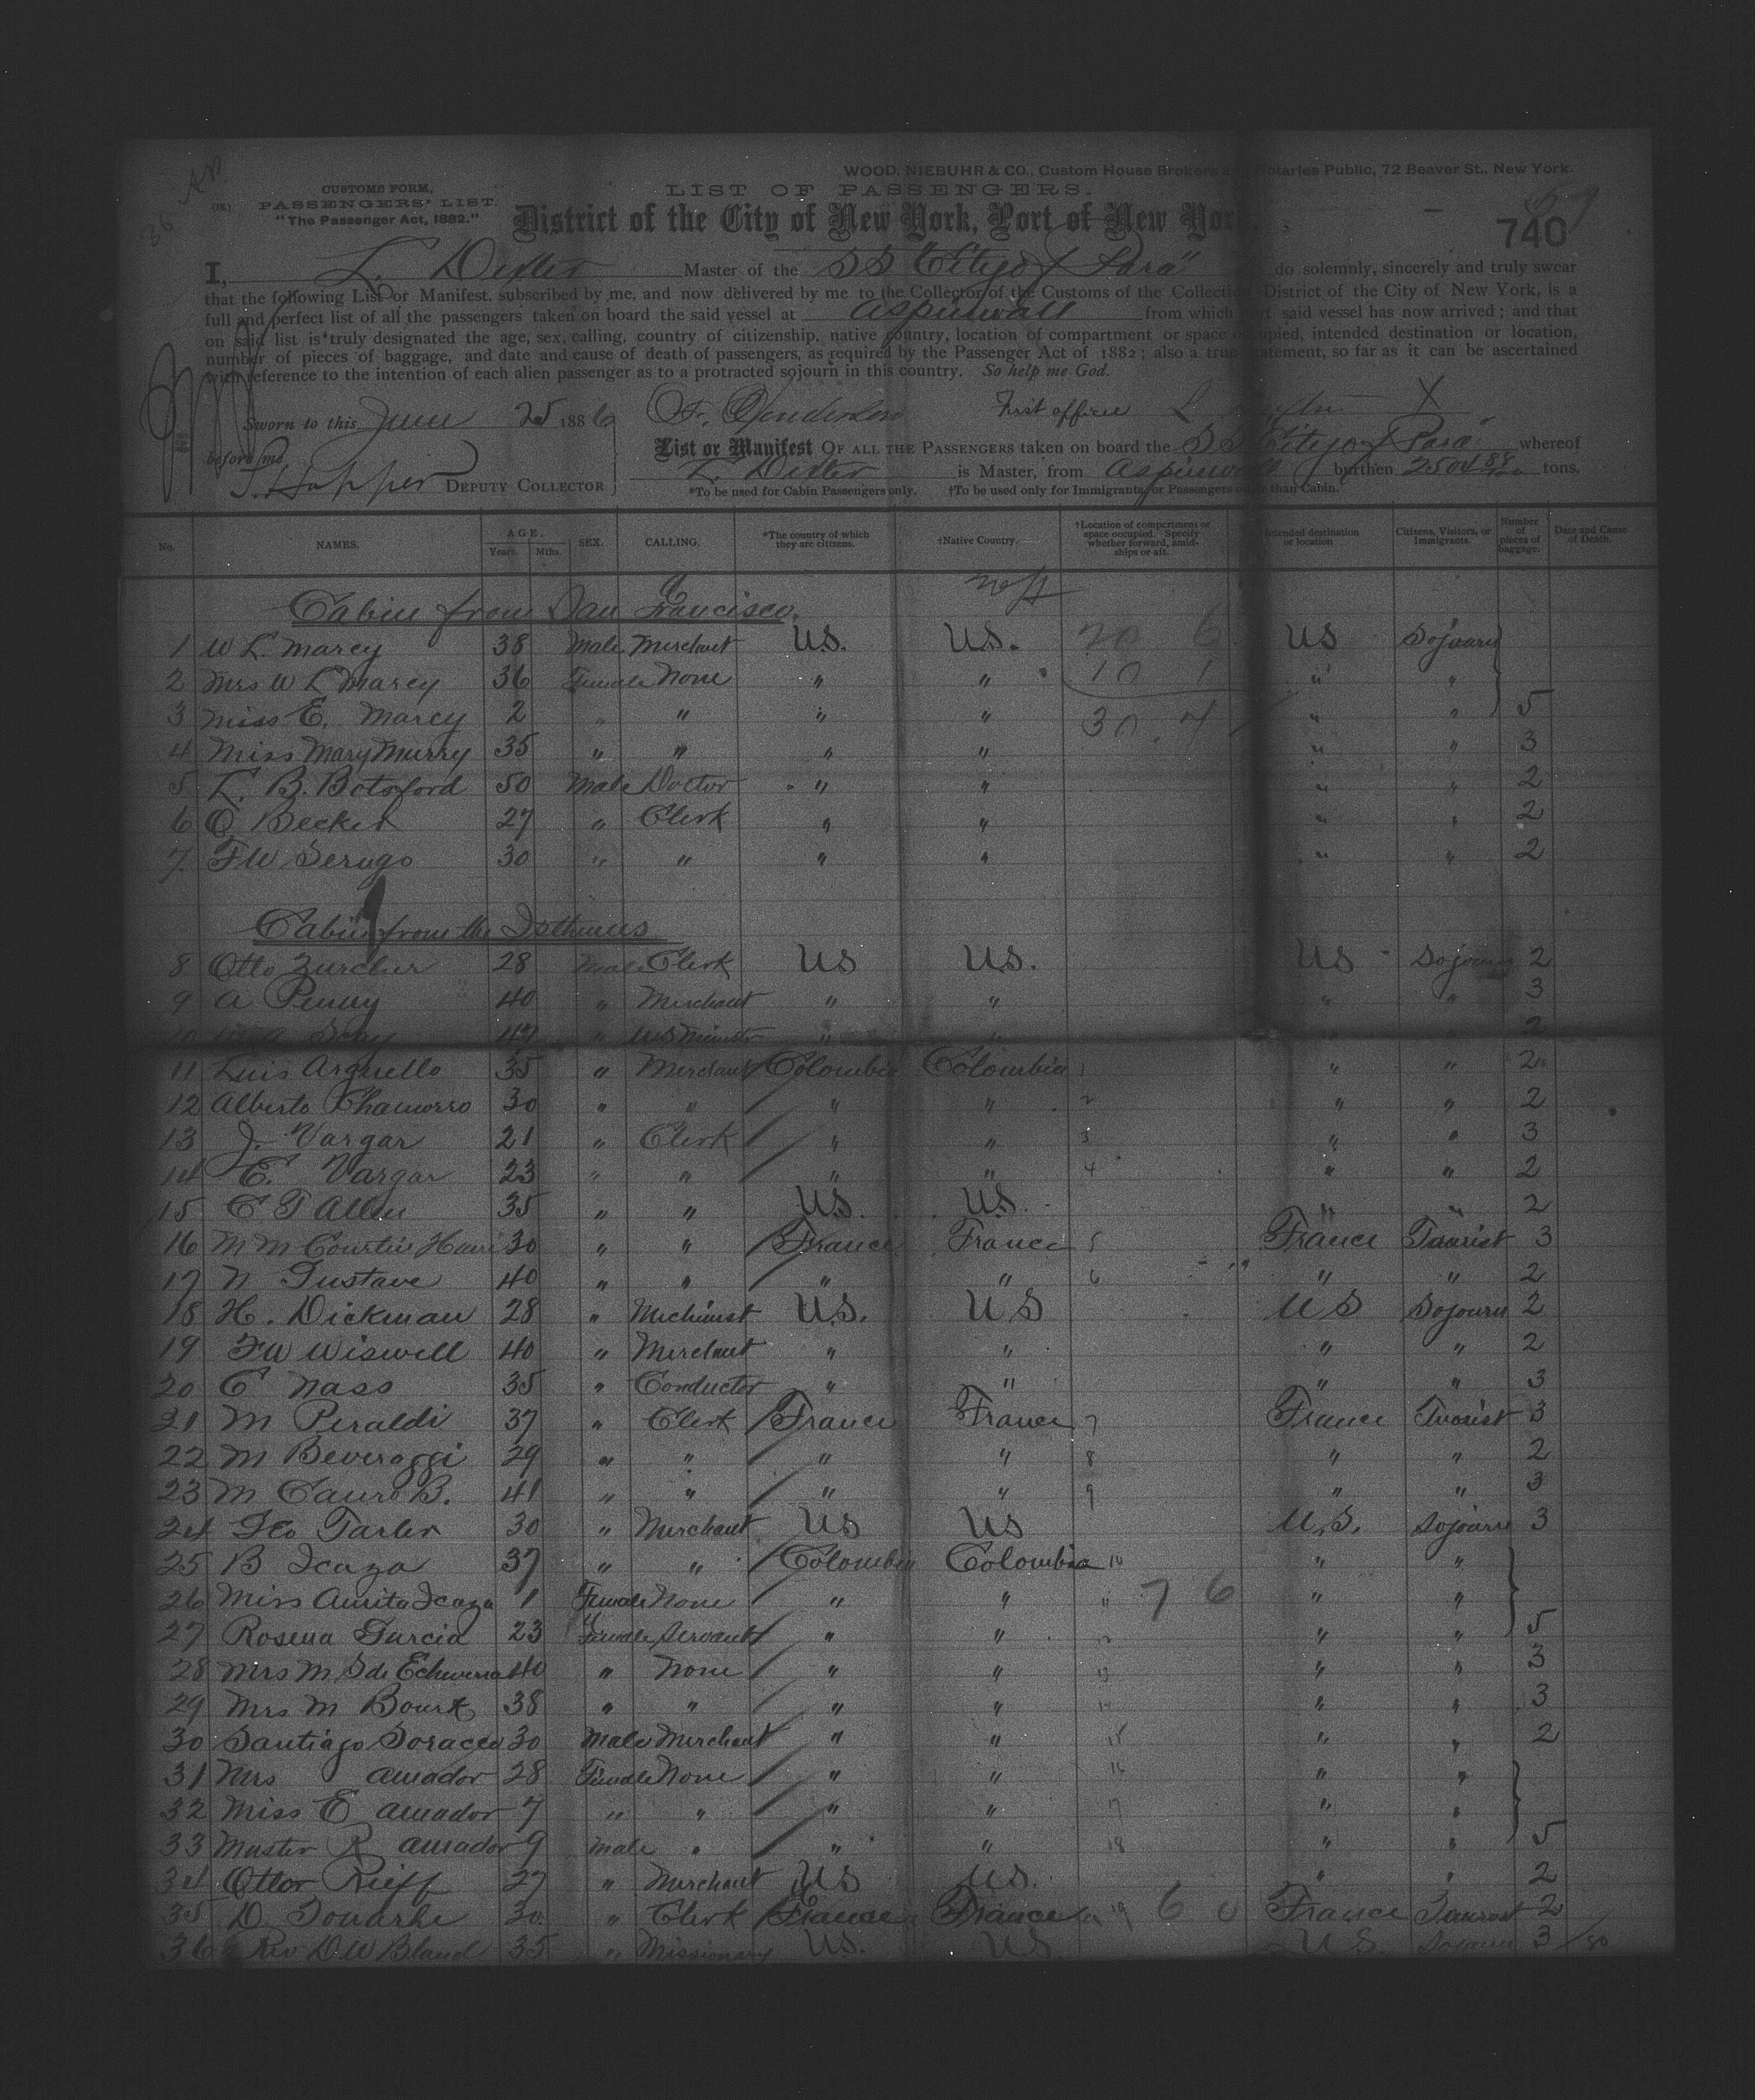 WOOD, NIEBUHR & CO., Custom House Brokers and Notaries Public, 72 Beaver St., New York.
CUSTOMS FORM,
PASSENGERS' LIST.
"The Passenger Act, 1882."
LIST OF PASSENGERS.
District of the City of New York, Port of New York.
740
I, L. Dexter Master of the SS "City of Para" do solemnly, sincerely and truly swear
that the following List or Manifest, subscribed by me, and now delivered by me to the Collector of the Customs of the Collection District of the City of New York, is a
full and perfect list of all the passengers taken on board the said vessel at Aspinwall from which port said vessel has now arrived; and that
on said list is truly designated the age, sex, calling, country of citizenship, native country, location of compartment or space occupied, intended destination or location,
number of pieces of baggage, and date and cause of death of passengers, as required by the Passenger Act of 1882; also a true statement, so far as it can be ascertained
with reference to the intention of each alien passenger as to a protracted sojourn in this country. So help me God.
Sworn to this June 25 1886 First officer X
before me
DEPUTY COLLECTOR
List or Manifest OF ALL THE PASSENGERS taken on board the SS "City of Para" whereof
L. Dexter is Master, from Aspinwall burthen tons.
*To be used for Cabin Passengers only. †To be used only for Immigrants, or Passengers other than Cabin.
No. NAMES. AGE. Years. Mths. SEX. CALLING. *The country of which they are citizens. †Native Country. †Location of compartment or space occupied. Specify whether forward, amidships or aft. Intended destination or location Citizens, Visitors, or Immigrants. Number of pieces of baggage. Date and Cause of Death.
Cabin from San Francisco.
1 W L Marcy 38 Male Merchant U.S. U.S. 20 6 US Sojourn
2 Mrs W L Marcy 36 Female None " " 10 1 " "
3 Miss E. Marcy 2 " " " " 30 7 " " 5
4 Miss Mary Murry 35 " " " " " " 3
5 L. B. Botsford 50 Male Doctor " " " " 2
6 O Becker 27 " Clerk " " " " 2
7 FW Serugo 30 " " " " " " 2
Cabin from the Isthmus
8 Otto Zurcher 28 Male Clerk US U.S. US Sojourn 2
9 A Penny 40 " Merchant " " " " 3
10 " US Minister " " 2
11 Luis Arguello 35 " Merchant Colombia Colombia 1 " " 2
12 Alberto Chamorro 30 " " " " 2 " " 2
13 J. Vargar 21 " Clerk " " 3 " " 3
14 E. Vargar 23 " " " " 4 " " 2
15 C T Allen 35 " " U.S. U.S. " " 2
16 M M Courtin Henri 30 " " France France 5 France Tourist 3
17 N Gustave 40 " " " " 6 " " 2
18 H. Dickman 28 " Mechinist U.S. U S U S Sojourn 2
19 FW Wiswell 40 " Merchant " " " " 2
20 C Nass 35 " Conductor " " " " 3
21 M Peraldi 37 " Clerk France France 7 France Tourist 3
22 M Beveraggi 29 " " " " 8 " " 2
23 M Cauro B. 41 " " " " 9 " " 3
24 Geo Tarler 30 " Merchant US US U.S. Sojourn 3
25 B Icaza 37 " " Colombia Colombia 10 " "
26 Miss Anita Icaza 1 Female None " " 11 7 6 " "
27 Rosena Garcia 23 Female Servant " " 12 " " 5
28 Mrs M S de Echverra 40 " None " " 13 " " 3
29 Mrs M Bourk 38 " " " " 14 " " 3
30 Santiago Soracco 30 Male Merchant " " 15 " " 2
31 Mrs Amador 28 Female None " " 16 " "
32 Miss E Amador 7 " " " " 17 " "
33 Master R Amador 9 Male " " " 18 " " 5
34 Ottor Rieff 27 " Merchant US U.S. " " 2
35 D Touarke 30 " Clerk France France 19 6 0 France Tourist 2
36 Rev D W Bland 35 " Missionary U.S. US U S Sojourn 3